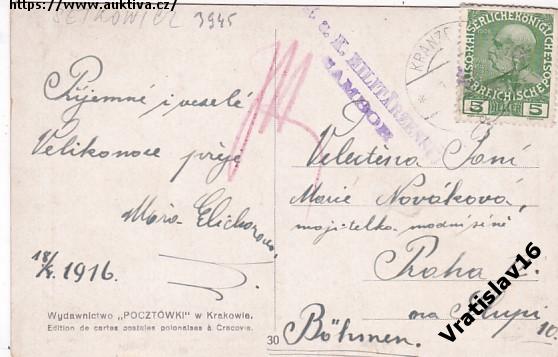 https://www.auktiva.cz/
3945
Příjemné i veselé
Velikonoce přeje
1916.
Wydawnictwo „POCZTÓWKI" w Krakowie.
Edition de cartes postales polonaises à Cracovie.
30
K. MILITÄRZENSUR
SAMBOR
KRANZ
KAISERLICHE KÖNIGLICHE
ÖSTERREICHISCHE POST
5 HELLER 5
Velectěná Paní
Marie Nováková,
majitelka modní síně
Praha I.
na
Böhmen.
Vratislav16